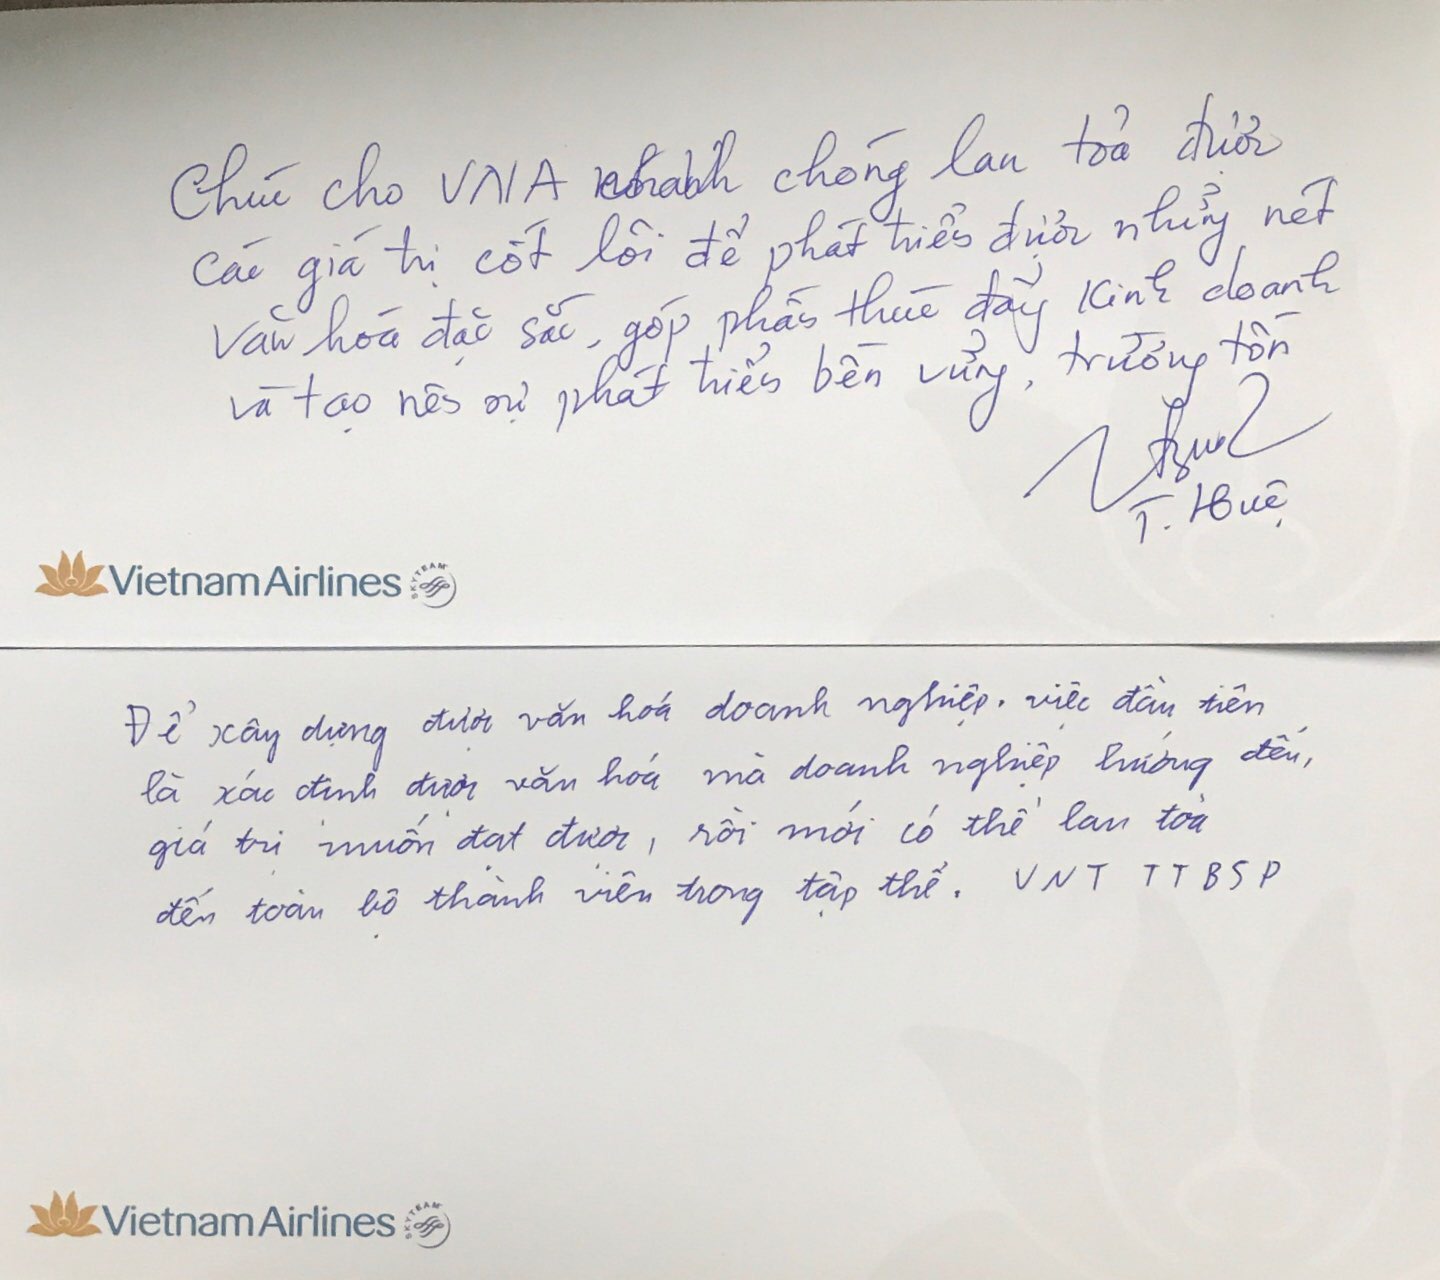 Chúc cho VNA nhanh chóng lan toả được
các giá trị cốt lõi để phát triển được những nét
văn hoá đặc sắc, góp phần thúc đẩy kinh doanh
và tạo nên sự phát triển bền vững, trường tồn
T. Huệ
Vietnam Airlines SKYTEAM
Để xây dựng được văn hoá doanh nghiệp. việc đầu tiên
là xác định được văn hoá mà doanh nghiệp hướng đến,
giá trị muốn đạt được, rồi mới có thể lan toả
đến toàn bộ thành viên trong tập thể. VNT TTBSP
Vietnam Airlines SKYTEAM